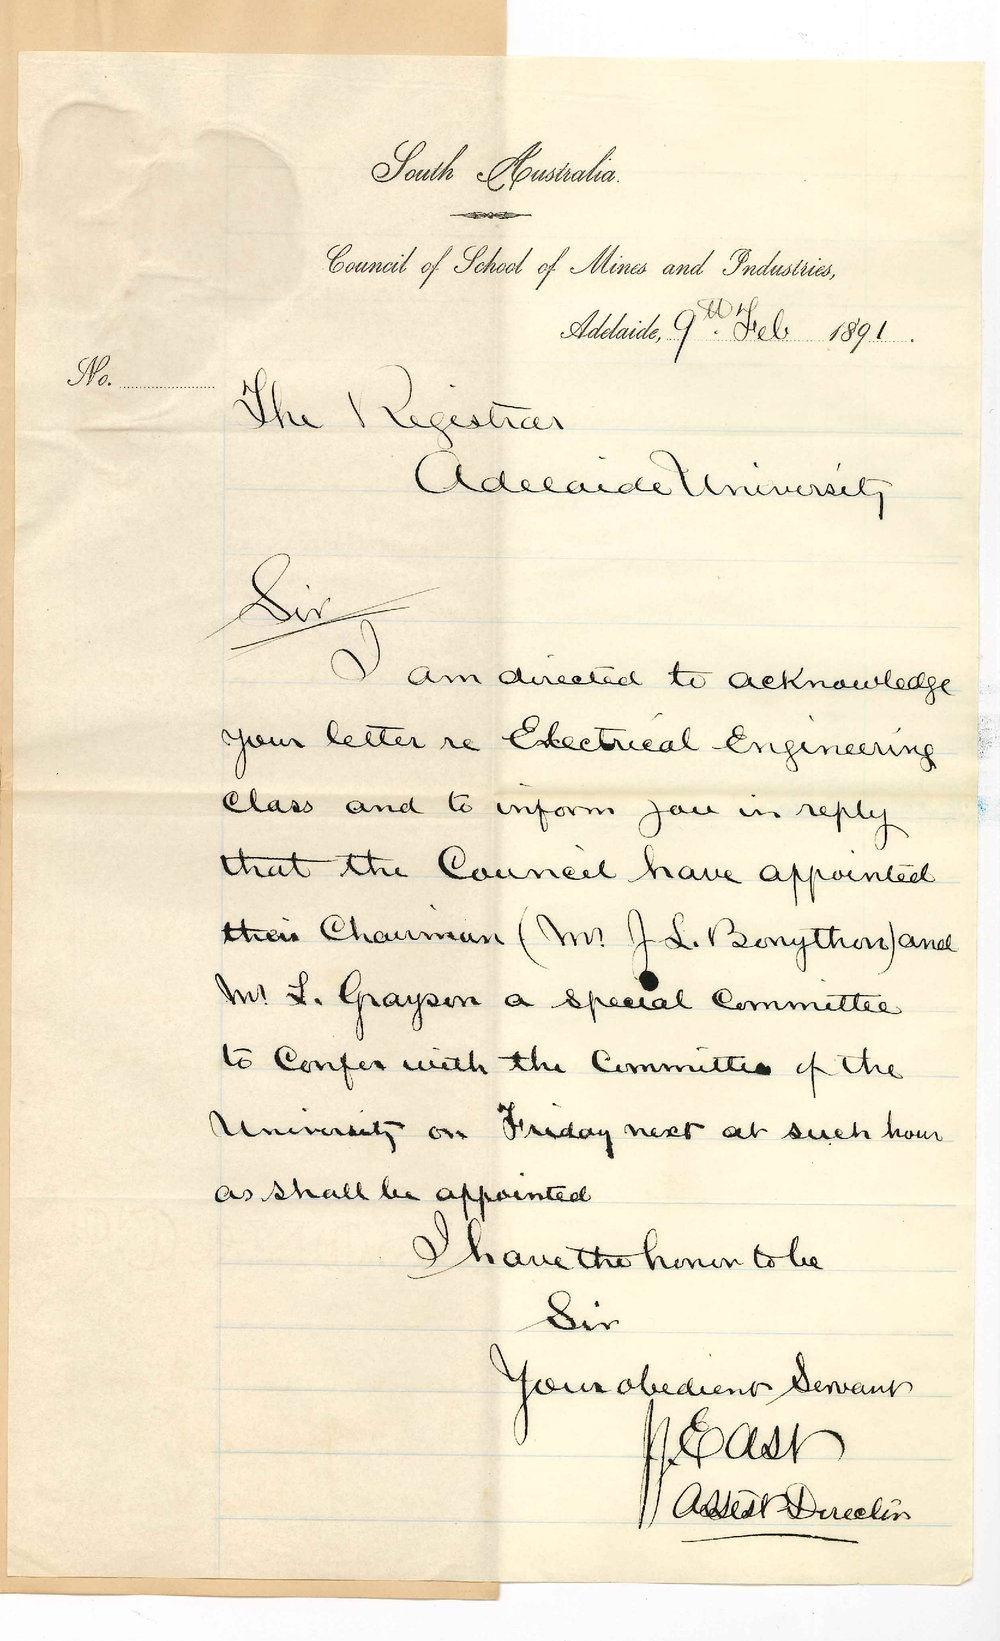 South Australia.
Council of School of Mines and Industries,
Adelaide, 9th. Feb 1891.
No.
The Registrar
Adelaide University
Sir
I am directed to acknowledge
your letter re Electrical Engineering
Class and to inform you in reply
that the Council have appointed
their Chairman (Mr J L. Bonython) and
Mr L. Grayson a special Committee
to Confer with the Committee of the
University on Friday next at such hour
as shall be appointed
I have the honor to be
Sir
Your obedient Servant
JJ East
Assist Director